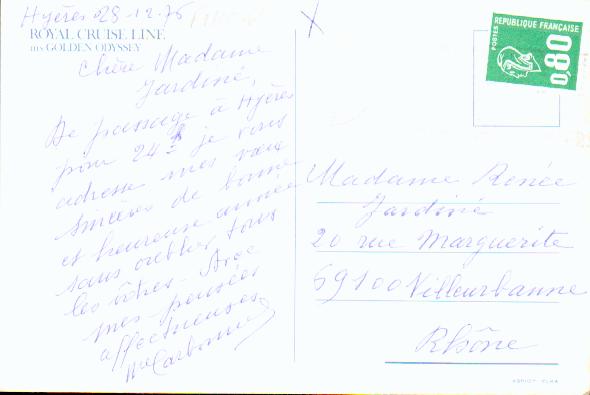 Hyères 28-12-76
ROYAL CRUISE LINE
ms GOLDEN ODYSSEY
Chère Madame
Jardiné,
De passage à Hyères
pour 24 h je vous
adresse mes vœux
sincères de bonne
et heureuse année
sans oublier tous
les vôtres. Avec
mes pensées
affectueuses
Carbonne
POSTES
REPUBLIQUE FRANÇAISE
0,80
Madame Renée
Jardiné
20 rue Marguerite
69100 Villeurbanne
Rhône